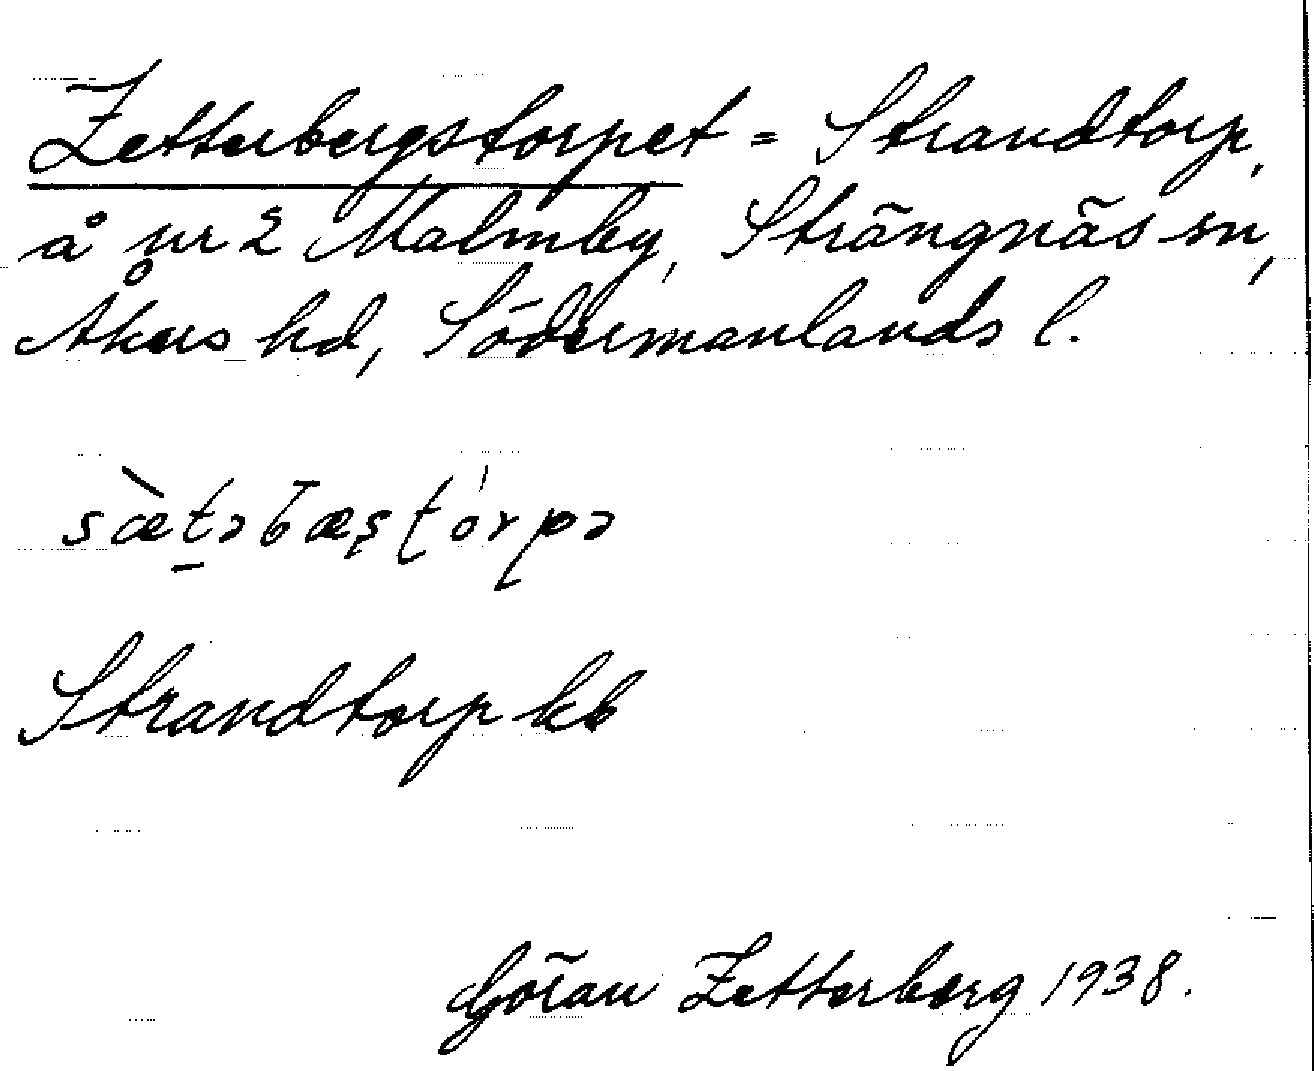 Zetterbergstorpet = Strandtorp,
å nr 2 Malmby, Strängnäs sn,
Åkers hd, Södermanlands l.
sæ̀təbæştórpə
Strandtorp kb
Göran Zetterberg 1938.